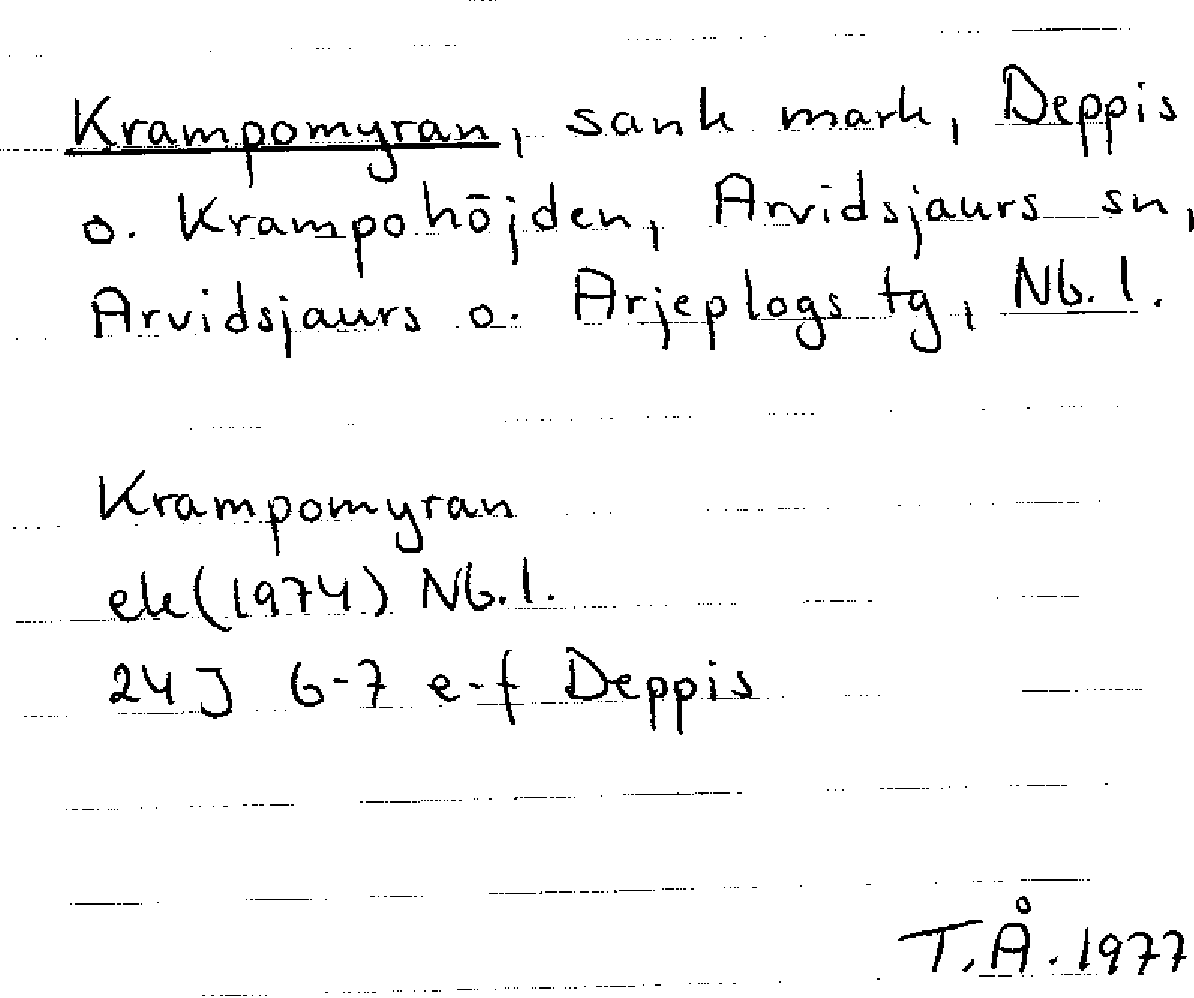 Krampomyran, sank mark, Deppis
o. Krampohöjden, Arvidsjaurs sn,
Arvidsjaurs o. Arjeplogs tg, Nb. l.
Krampomyran
ek (1974) Nb. l.
24 J 6-7 e-f Deppis
T. Å. 1977